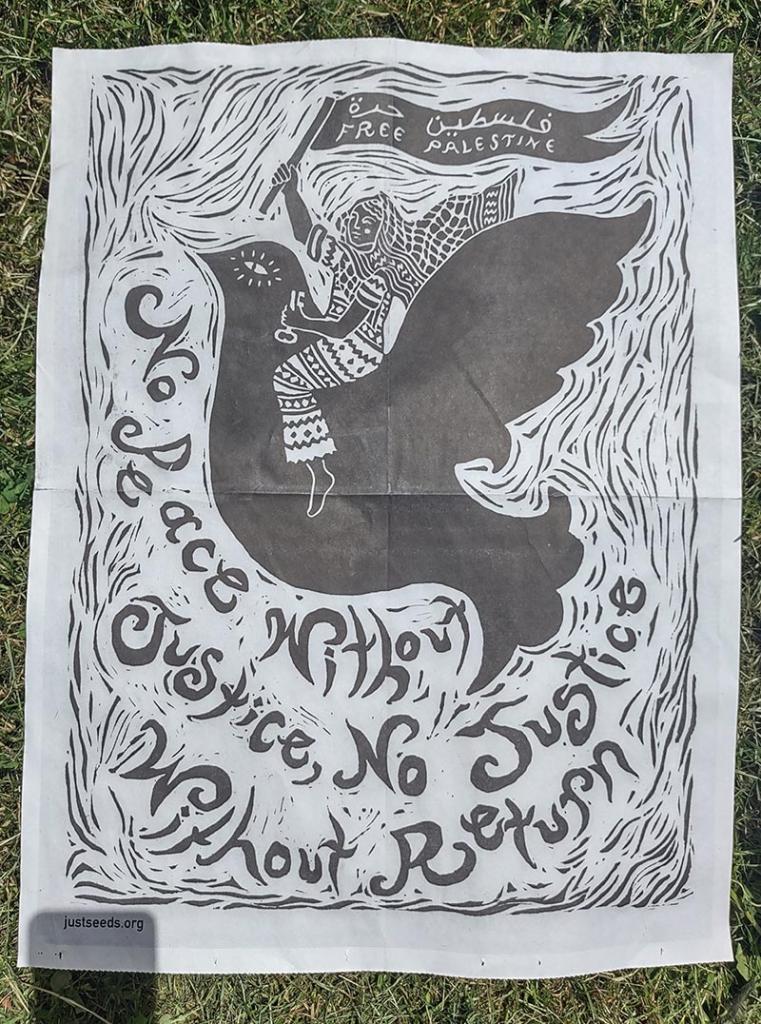 فلسطين حرة
FREE PALESTINE
No Peace Without
Justice, No Justice
Without Return
justseeds.org